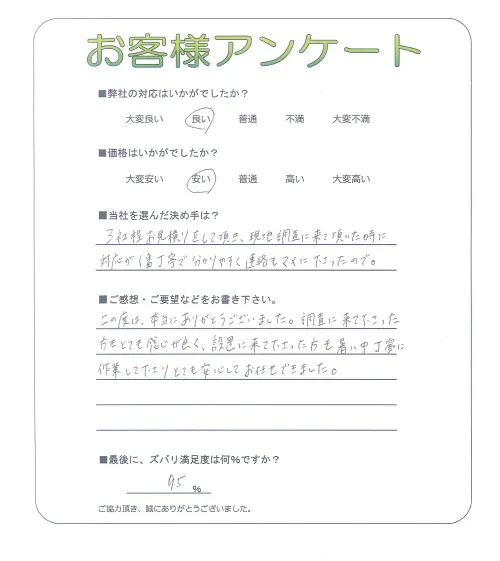 お客様アンケート
■弊社の対応はいかがでしたか?
大変良い 良い 普通 不満 大変不満
■価格はいかがでしたか?
大変安い 安い 普通 高い 大変高い
■当社を選んだ決め手は?
3社程お見積りをして頂き、現地調査に来て頂いた時に
対応が1番丁寧で分かりやすく連絡もマメに下さったので。
■ご感想・ご要望などをお書き下さい。
この度は、本当にありがとうございました。調査に来て下さった
方もとても感じが良く、設置に来て下さった方も暑い中丁寧に
作業して下さりとても安心してお任せできました。
■最後に、ズバリ満足度は何%ですか?
95 %
ご協力頂き、誠にありがとうございました。